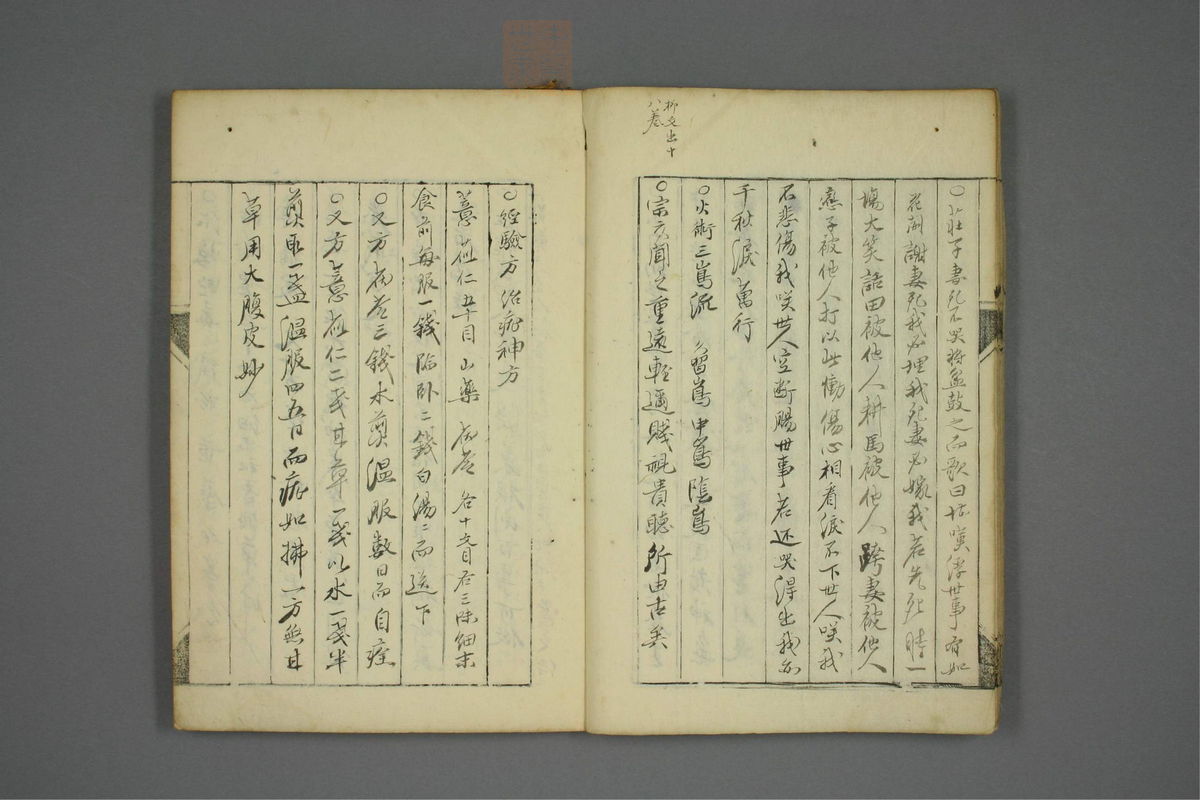 柳文出十
八卷
○莊子妻死不哭將盆鼓之而歌曰堪嘆浮世事有如
花開謝妻死我必埋我死妻必嫁我若先死時一
場大笑話田被他人耕馬被他人跨妻被他人
戀子被他人打以此慟傷心相看淚不下世人咲我
不悲傷我咲世人空斷腸世事若还哭得出我亦
千秋淚萬行
○火術三嶌流 習嶌中嶌隆嶌
○宗元聞之重遠輕邇賤視貴聽所由古矣
○經驗方 治症神方
薏苡仁五十目 山藥 各十六目右三味細末
食前每服一錢臨卧二錢白湯ニ而送下
○又方 三錢水煎溫服數日而自痊
○又方薏苡仁二戔甘草一戔以水一戔半
煎取一盞溫服四五日而症如拂一方無甘
草用大腹皮妙